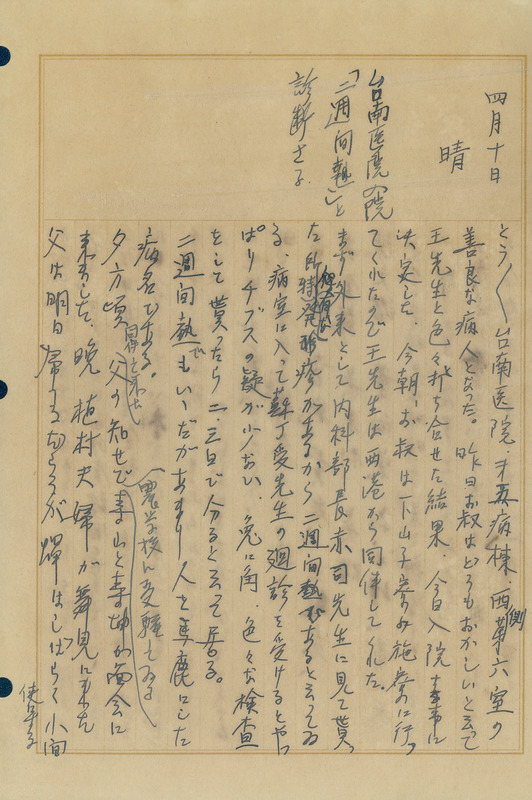 四月十日
晴
台南医院入院
「二週間熱」と
診断さる.
とう〳〵台南医院.才五病棟.西側第六室の
善良な病人となった。昨日お叔はどうもおかしいと云って
王先生と色々と打ち合せた結果.今日入院する事に
決定した。今朝.お叔は下山子寮の施寮に行っ
てくれたので王先生は西港から同伴してくれた。
まづ外来として内科部長赤司先生に見て貰っ
た所.発疹があるから二週間熱であると云ってゐ
る.病室に入って蘇丁受先生の廻診を受けるとやっ
ぱりチブスの疑が少ない.兎に角.色々な検査
をして貰ったら二三日で分ると云って居る。
二週間熱でもいゝだがあまり人を馬鹿にした
病名である。
夕方頃.父の知せで寿山と寿坤が面会に
来ました.晩 植村夫婦が舞見に来た
父は明日帰るだらうが嬋はしばらく小間
使する
冒と来た
(農学校に受験してゐる